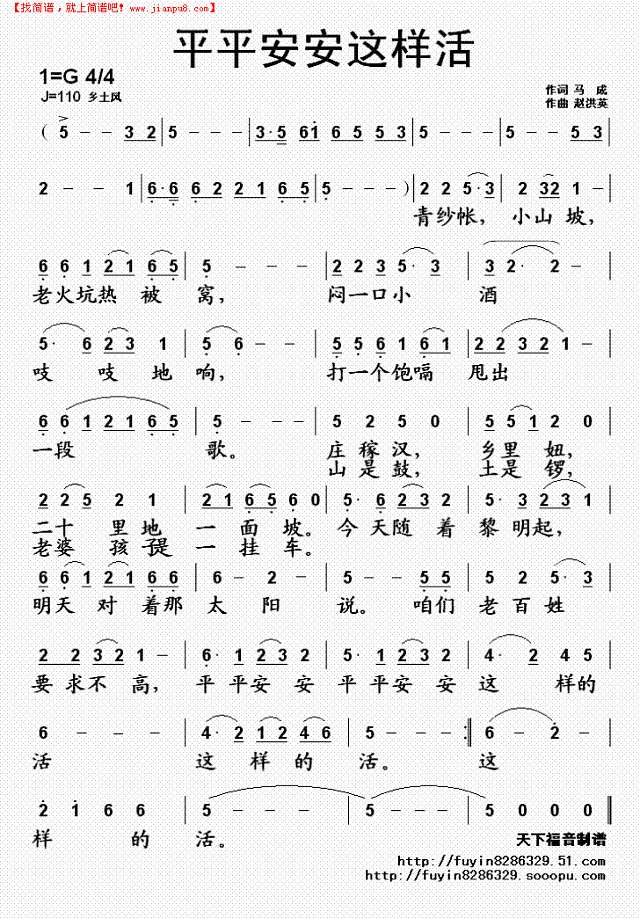 【找简谱，就上简谱吧！www.jianpu8.com】
平平安安这样活
1=G 4/4
J=110 乡土风
作词 马 成
作曲 赵洪英
( 5 - - 3 2 | 5 - - - | 3· 5 6i 6 5 5 3 | 5 - - - | 5 - - 5 3 |
2 - - 1 | 6·6 6 2 2 1 6 5 | 5 - - - ) | 2 2 5·3 | 2 32 1 - |
青纱帐，小山坡，
6 6 1 2 1 6 5 | 5 - - - | 2 2 3 5· 3 | 3 2· 2 - |
老火坑热 被 窝， 闷一口小 酒
5· 6 2 3 1 | 5 6 - - | 5 5 6 1 6 1 | 2 2 3 2 1 - |
吱 吱 地 响， 打一个饱嗝 甩出
6 6 1 2 1 6 5 | 5 - - - | 5 2 5 0 | 5 5 1 2 0 |
一段 歌。 庄稼汉， 乡里 妞，
山是鼓， 土是 锣，
2 2 5 2 1 | 2 1 6 5 6 0 | 5· 6 2 3 2 | 5· 3 2 3 2 |
二十 里地 一 面坡。今 天随 着 黎明起，
老婆 孩子是 一 挂车。
6 6 1 2 1 6 5 | 6 - 2 - | 5 - - 5 5 | 5 2 5 · 3 |
明天 对 着那 太 阳 说。 咱们 老百姓
2 2 3 2 1 - | 6· 1 2 3 2 | 5· 1 2 3 2 | 4· 2 4 5 |
要求不 高， 平 平安 安 平 平安 安 这 样的
6 - - - | 4· 2 1 2 2 4 6 | 5 - - - :| 5 - 2 - |
活 这 样 的 活。 这
2 1 6 6 | 5 - - - | 5 - - - | 5 0 0 0 ‖
样 的 活。
天下福音制谱
http://fuyin8286329.51.com
http://fuyin8286329.sooopu.com